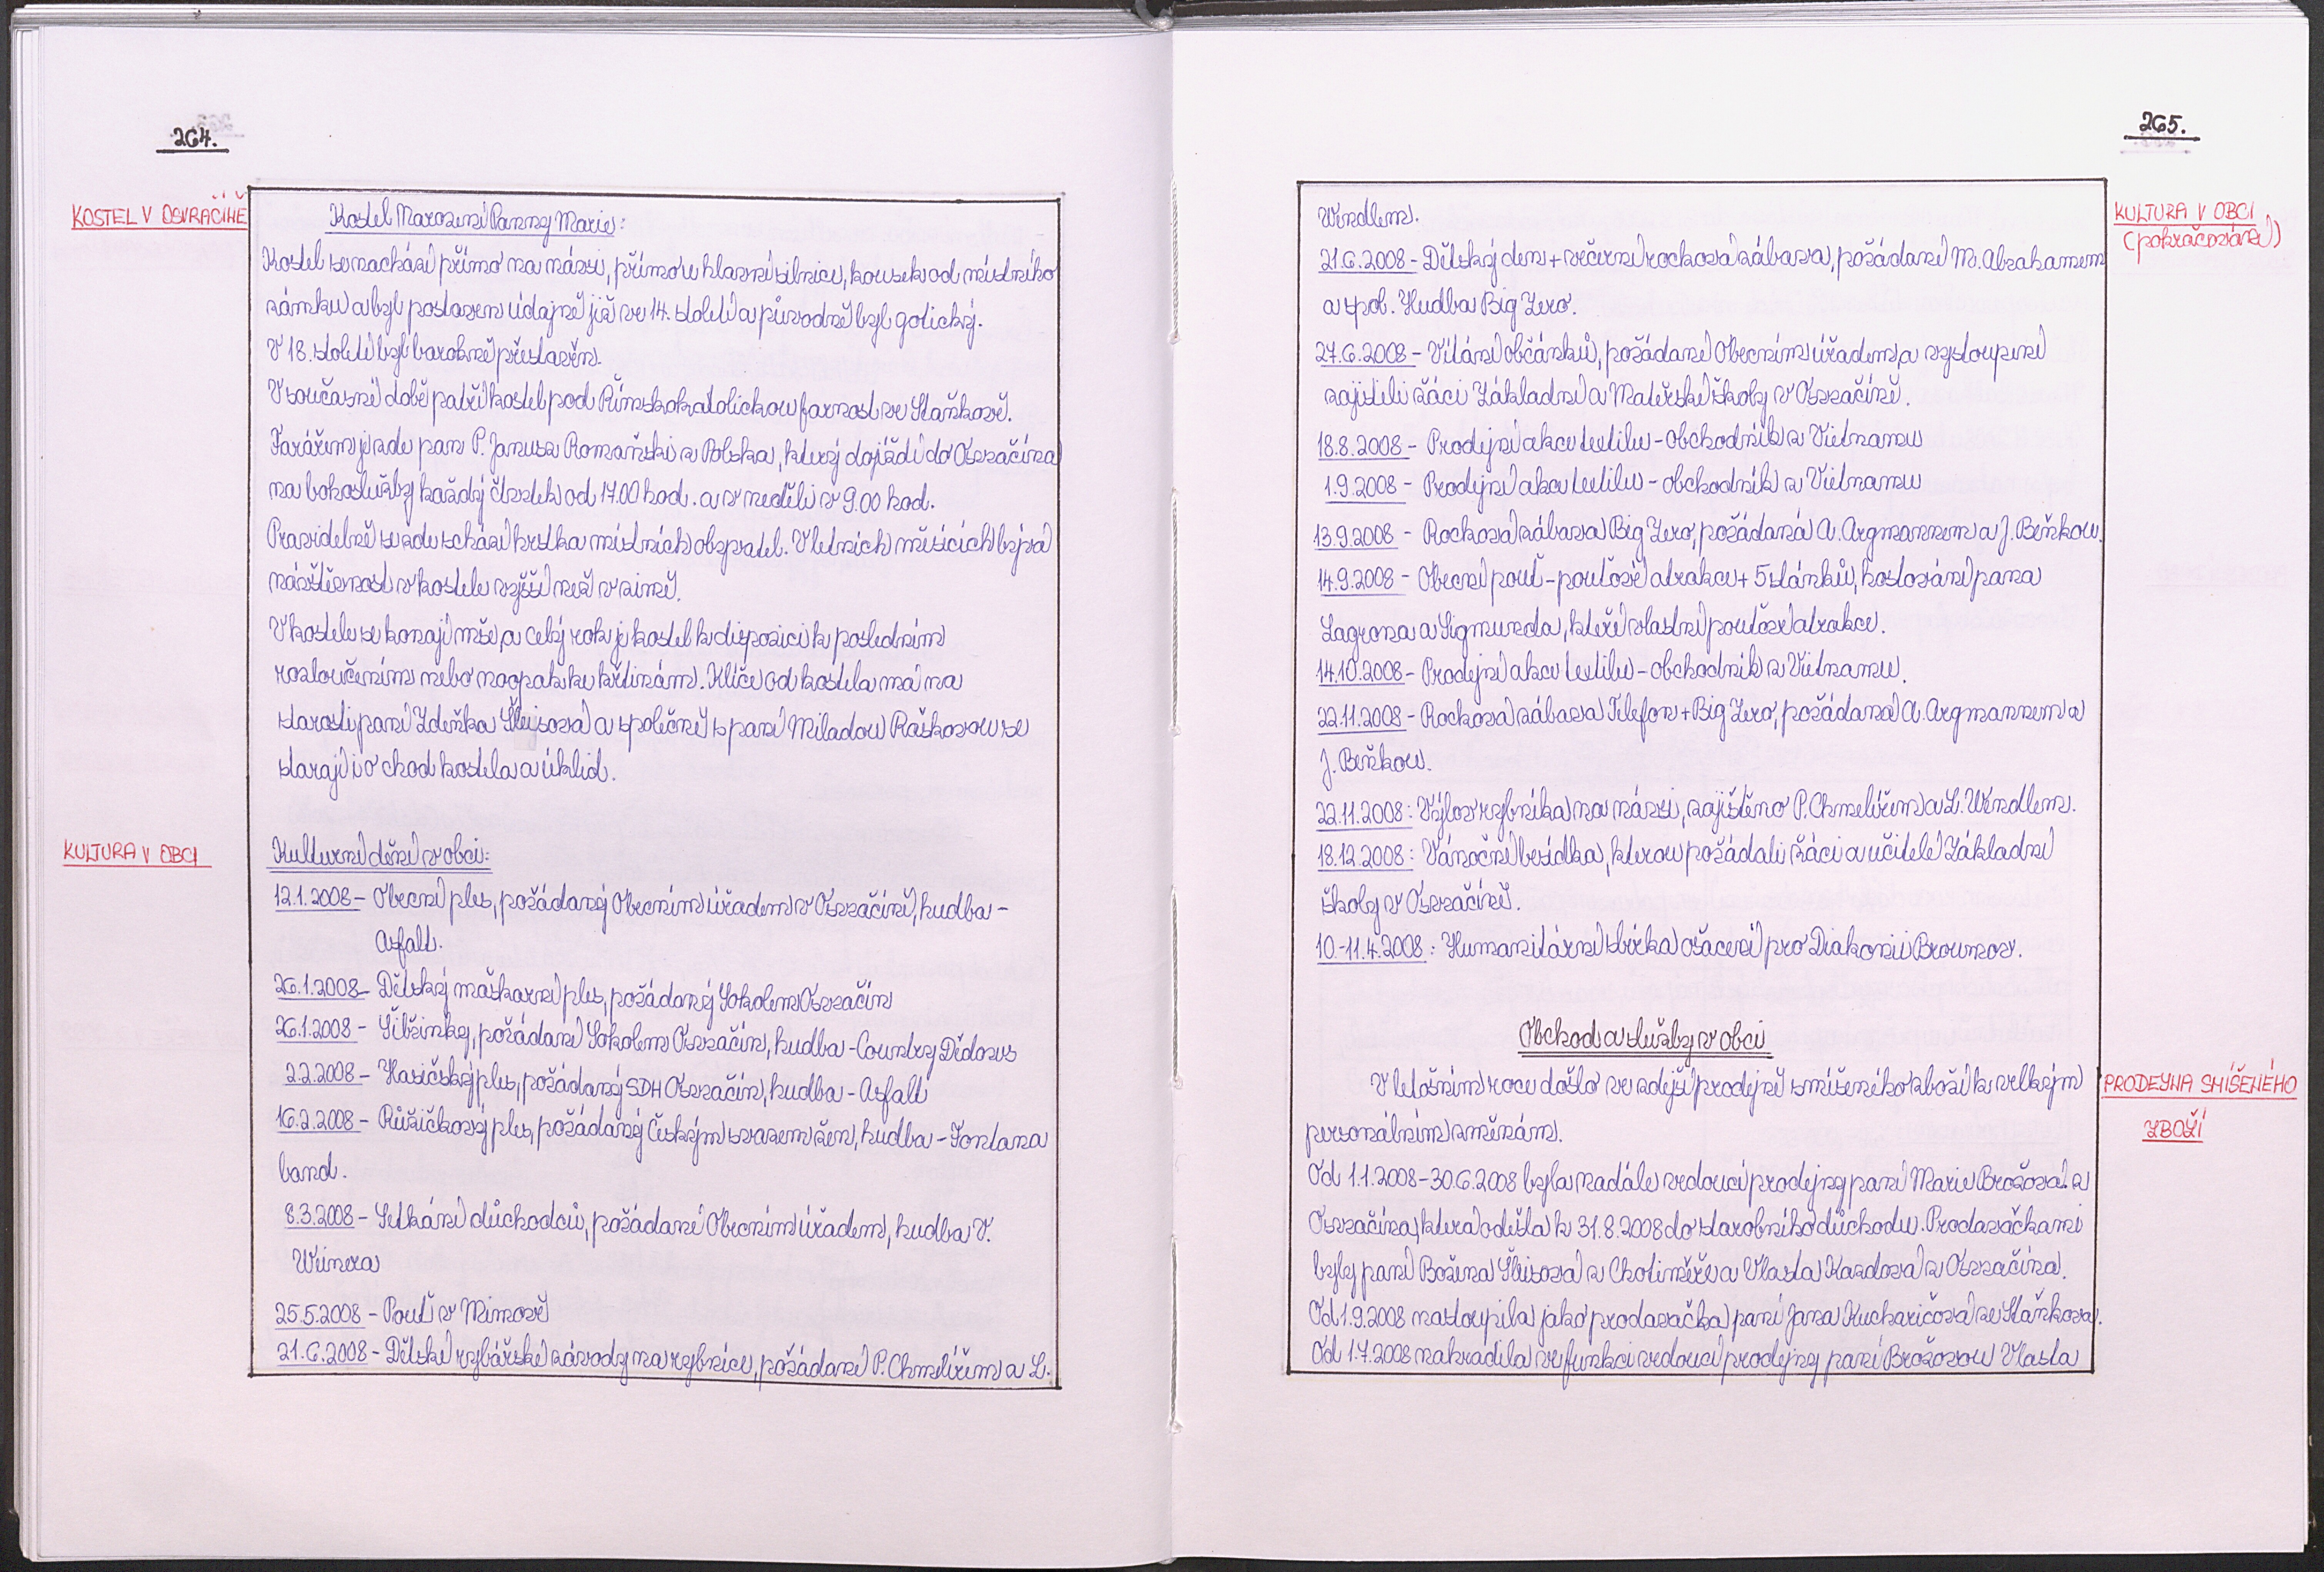 264.
KOSTEL V OSVRAČÍNĚ
Kostel Narození Panny Marie:
Kostel se nachází přímo na návsi, přímo u hlavní silnice, kousek od místního
zámku a byl postaven údajně již ve 14. století a původně byl gotický.
V 18. století byl barokně přestavěn.
V současné době patří kostel pod Římskokatolickou farnost ve Staňkově.
Farářem je zde pan P. Janusz Romański z Polska, který dojíždí do Osvračína
na bohoslužby každý čtvrtek od 17.00 hod. a v neděli v 9.00 hod.
Pravidelně se zde schází hrstka místních obyvatel. V letních měsících bývá
návštěvnost v kostele vyšší než v zimě.
V kostele se konají mše, a celý rok je kostel k dispozici k posledním
rozloučením nebo naopak ke křtinám. Klíče od kostela má na
starosti paní Zdeňka Šleisová a společně s paní Miladou Raškovou se
starají i o chod kostela a úklid.
KULTURA V OBCI
Kulturní dění v obci:
12.1.2008 – Obecní ples, požádaný Obecním úřadem v Osvračíně, hudba –
Asfalt.
26.1.2008 – Dětský maškarní ples, požádaný Sokolem Osvračín
26.1.2008 – Šibřinky, požádané Sokolem Osvračín, hudba – Country Dědovs
2.2.2008 – Hasičský ples, požádaný SDH Osvračín, hudba – Asfalt
16.2.2008 – Růžičkový ples, požádaný Českým svazem žen, hudba – Fontana
band.
8.3.2008 – Setkání důchodců, požádané Obecním úřadem, hudba V.
Weinera
25.5.2008 – Pouť v Mimově
21.6.2008 – Dětské rybářské závody na rybníce, požádané P. Chmelířem a L.
265.
KULTURA V OBCI
(pokračování)
Wendlem.
21.6.2008 – Dětský den + večerní rocková zábava, požádané M. Abrahamem
a spol. Hudba Big Zero.
27.6.2008 – Vítání občánků, požádané Obecním úřadem, a vystoupení
zajistili žáci Základní a Mateřské školy v Osvračíně.
18.8.2008 – Prodejní akce textilu – obchodník z Vietnamu
1.9.2008 – Prodejní akce textilu – obchodník z Vietnamu
13.9.2008 – Rocková zábava Big Zero, požádaná A. Argmannem a J. Beňkou.
14.9.2008 – Obecní pouť – pouťové atrakce + 5 stánků, hostování pana
Lagrona a Sigmunda, kteří vlastní pouťové atrakce.
14.10.2008 – Prodejní akce textilu – obchodník z Vietnamu.
22.11.2008 – Rocková zábava Telefon + Big Zero, požádaná A. Argmannem a
J. Beňkou.
22.11.2008: Výlov rybníka na návsi, zajištěno P. Chmelířem a L. Wendlem.
18.12.2008: Vánoční besídka, kterou požádali žáci a učitelé Základní
školy v Osvračíně.
10.–11.4.2008: Humanitární sbírka ošacení pro Diakonii Broumov.
Obchod a služby v obci
PRODEJNA SMÍŠENÉHO
ZBOŽÍ
V letošním roce došlo ve zdejší prodejně smíšeného zboží k velkým
personálním změnám.
Od 1.1.2008–30.6.2008 byla nadále vedoucí prodejny paní Marie Brožová z
Osvračína, která odešla k 31.8.2008 do starobního důchodu. Prodavačkami
byly paní Božena Šleisová z Chotiměře a Vlasta Kazdová z Osvračína.
Od 1.9.2008 nastoupila jako prodavačka paní Jana Kucharičová ze Staňkova.
Od 1.7.2008 nahradila ve funkci vedoucí prodejny paní Brožovou Vlasta